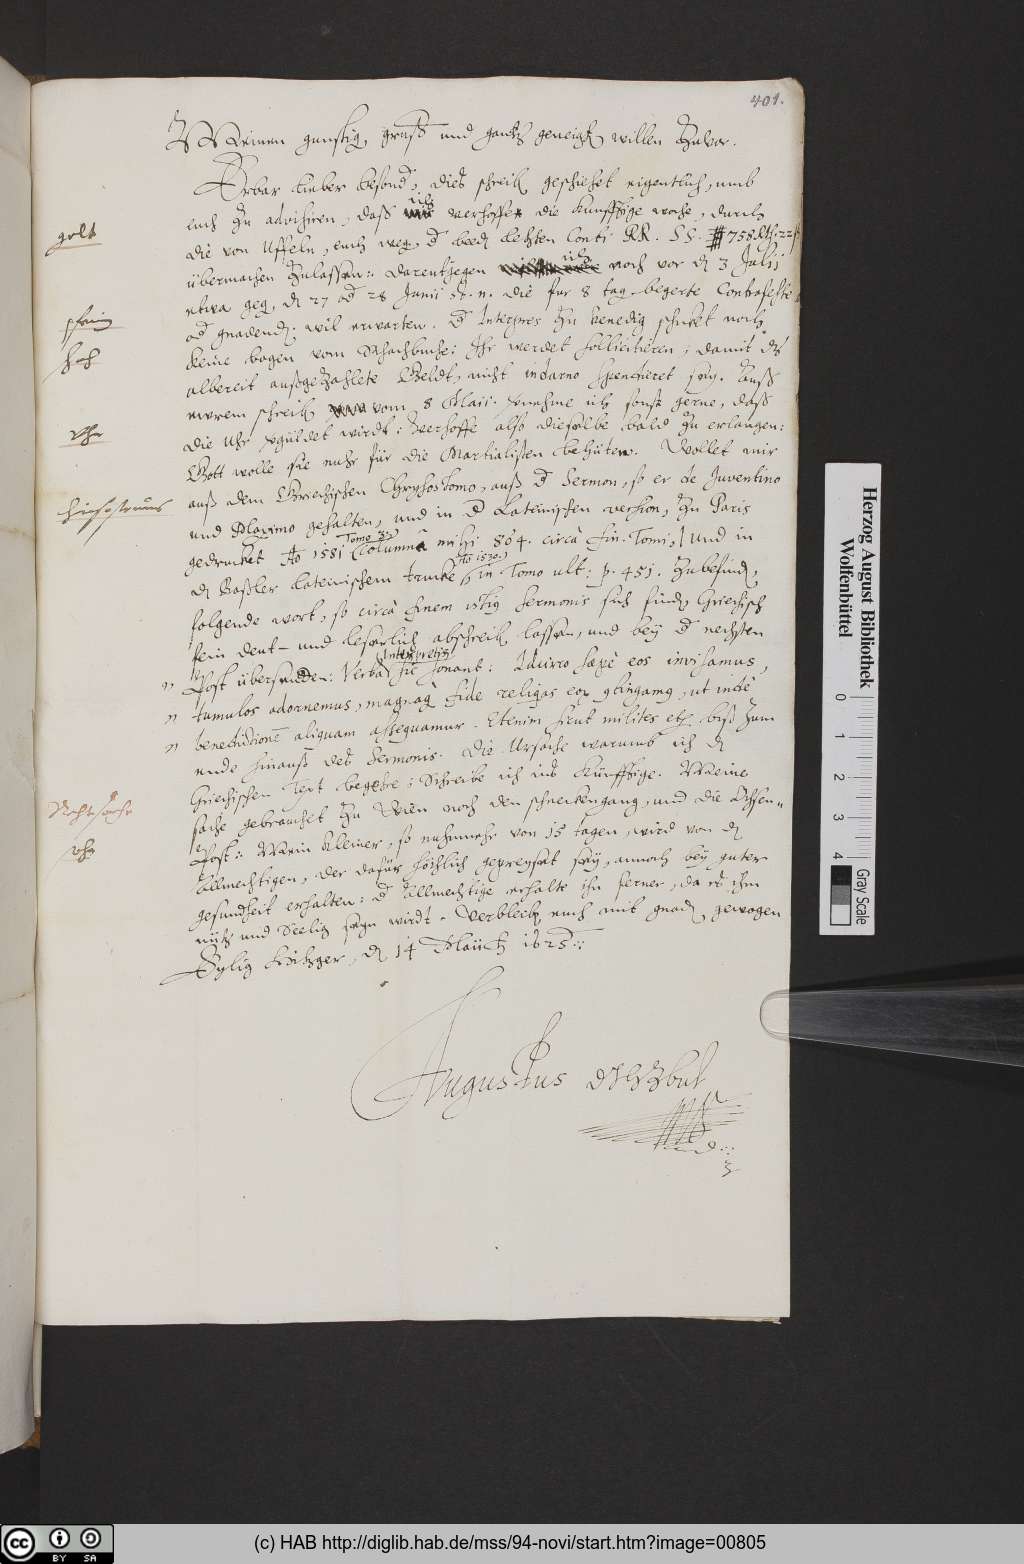 401.
Meinen gunstig, gruß und gantz geneigt willen zuvor.
Erbar lieber besond, dieß schreib geschiehet eigentlich, umb
euch zu advisiren, daß ich verhoffe die kunfftige woche, durch
gelt
die von Uffeln, euch weg, d beed letzten Conti RR. SS. 758 Rth. 22
übermachen zulassen: darentgegen ich noch vor d 3 Julii
etwa geg, d 27 od 28 Junii st. n. die fur 8 tag begerte Contrafeite
od gnadend, wil erwarten. d Interpres zu Venedig schicket noch
keine bogen vom Schachbuche: Ihr werdet sollicitieren, damit dz
albereit außgezahlete Geldt, nicht indarno spendieret sey. Auß
ewrem schreib vom 8 Maii. vernehme ich sonst gerne, daß
Uhr
die Uhr verguldet wirdt: Verhoffe also dieselbe bald zu erlangen:
Gott wolle sie nuhr für die Martialisten behüten. Wollet mir
auß dem Griechischen Chrysostomo, auß d Sermon, so er de Juventino
und Maximo gehalten, und in d Lateinischen version, zu Paris
gedrucket Ao 1581 Tomo 3. Columna mihi 804. circà fin. Tomi, und in
d Baßler lateinischem trucke Ao 1530. in Tomo ult: p. 451. zubefind,
folgende wort, so circà finem istig Sermonis sich find, Griechisch
fein deut- und leserlich abschreib lassen, und bey d nechsten
Post übersenden: Verba Interpretis sic sonant: Quirro sæpè eos invisamus,
tumulos adornemus, magnaq fide religas eor gtingamg, ut inde
benedictionē aliquam assequamur. Etenim sicut milites etc. biß zum
ende hinauß deß Sermonis. Die Ursache warumb ich d
Griechischen Text begehre: Schreibe ich inß künfftige. Meine
sache gebrauchet zu Wien noch den schneckengang, und die Ochsen=
Post: Mein kleiner, so nuhnmehr von 15 tagen, wird von d
Allmechtigen, der dafür höchlich gepreyset sey, annoch bey guter
gesundheit erhalten: d Allmechtige erhalte ihn ferner, da es ihm
nütz und Seelig seyn wirdt. Verbleib euch mit gnad gewogen
Eylig Hitzger, d 14 1625
Augustus
Herzog August Bibliothek
Wolfenbüttel
0 1 2 3 4
Gray Scale
cc BY SA
(c) HAB http://diglib.hab.de/mss/94-novi/start.htm?image=00805